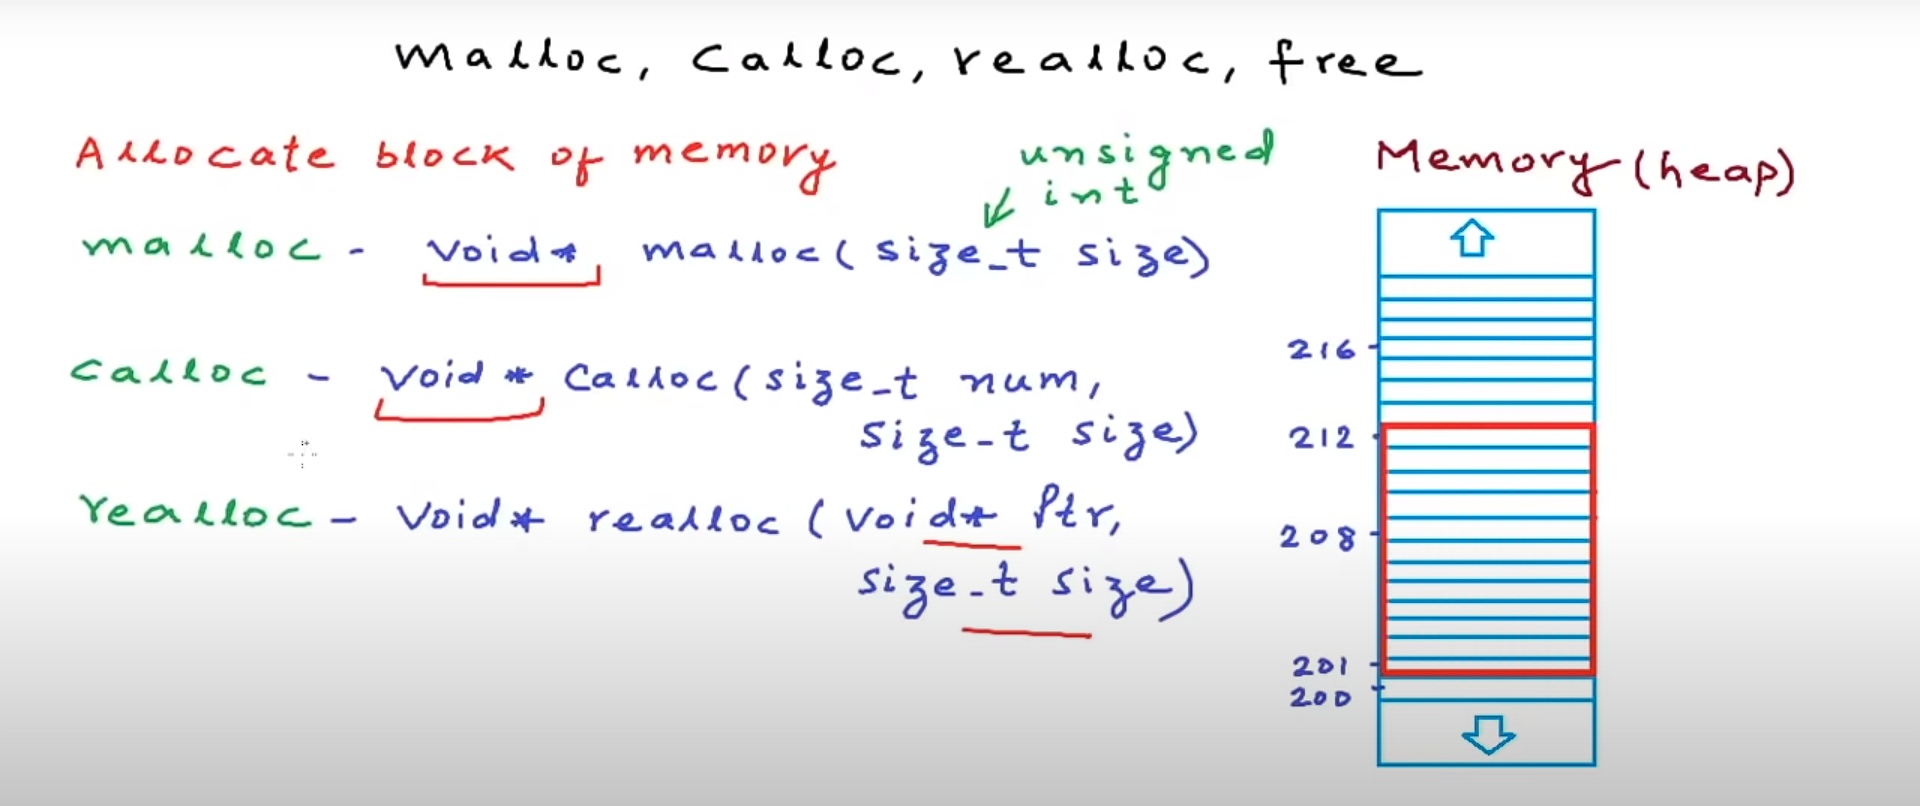 malloc, calloc, realloc, free
Allocate block of memory
unsigned
int
Memory (heap)
malloc - void* malloc(size_t size)
calloc - void* calloc(size_t num,
size_t size)
realloc - void* realloc (void* Ptr,
size_t size)
216
212
208
201
200